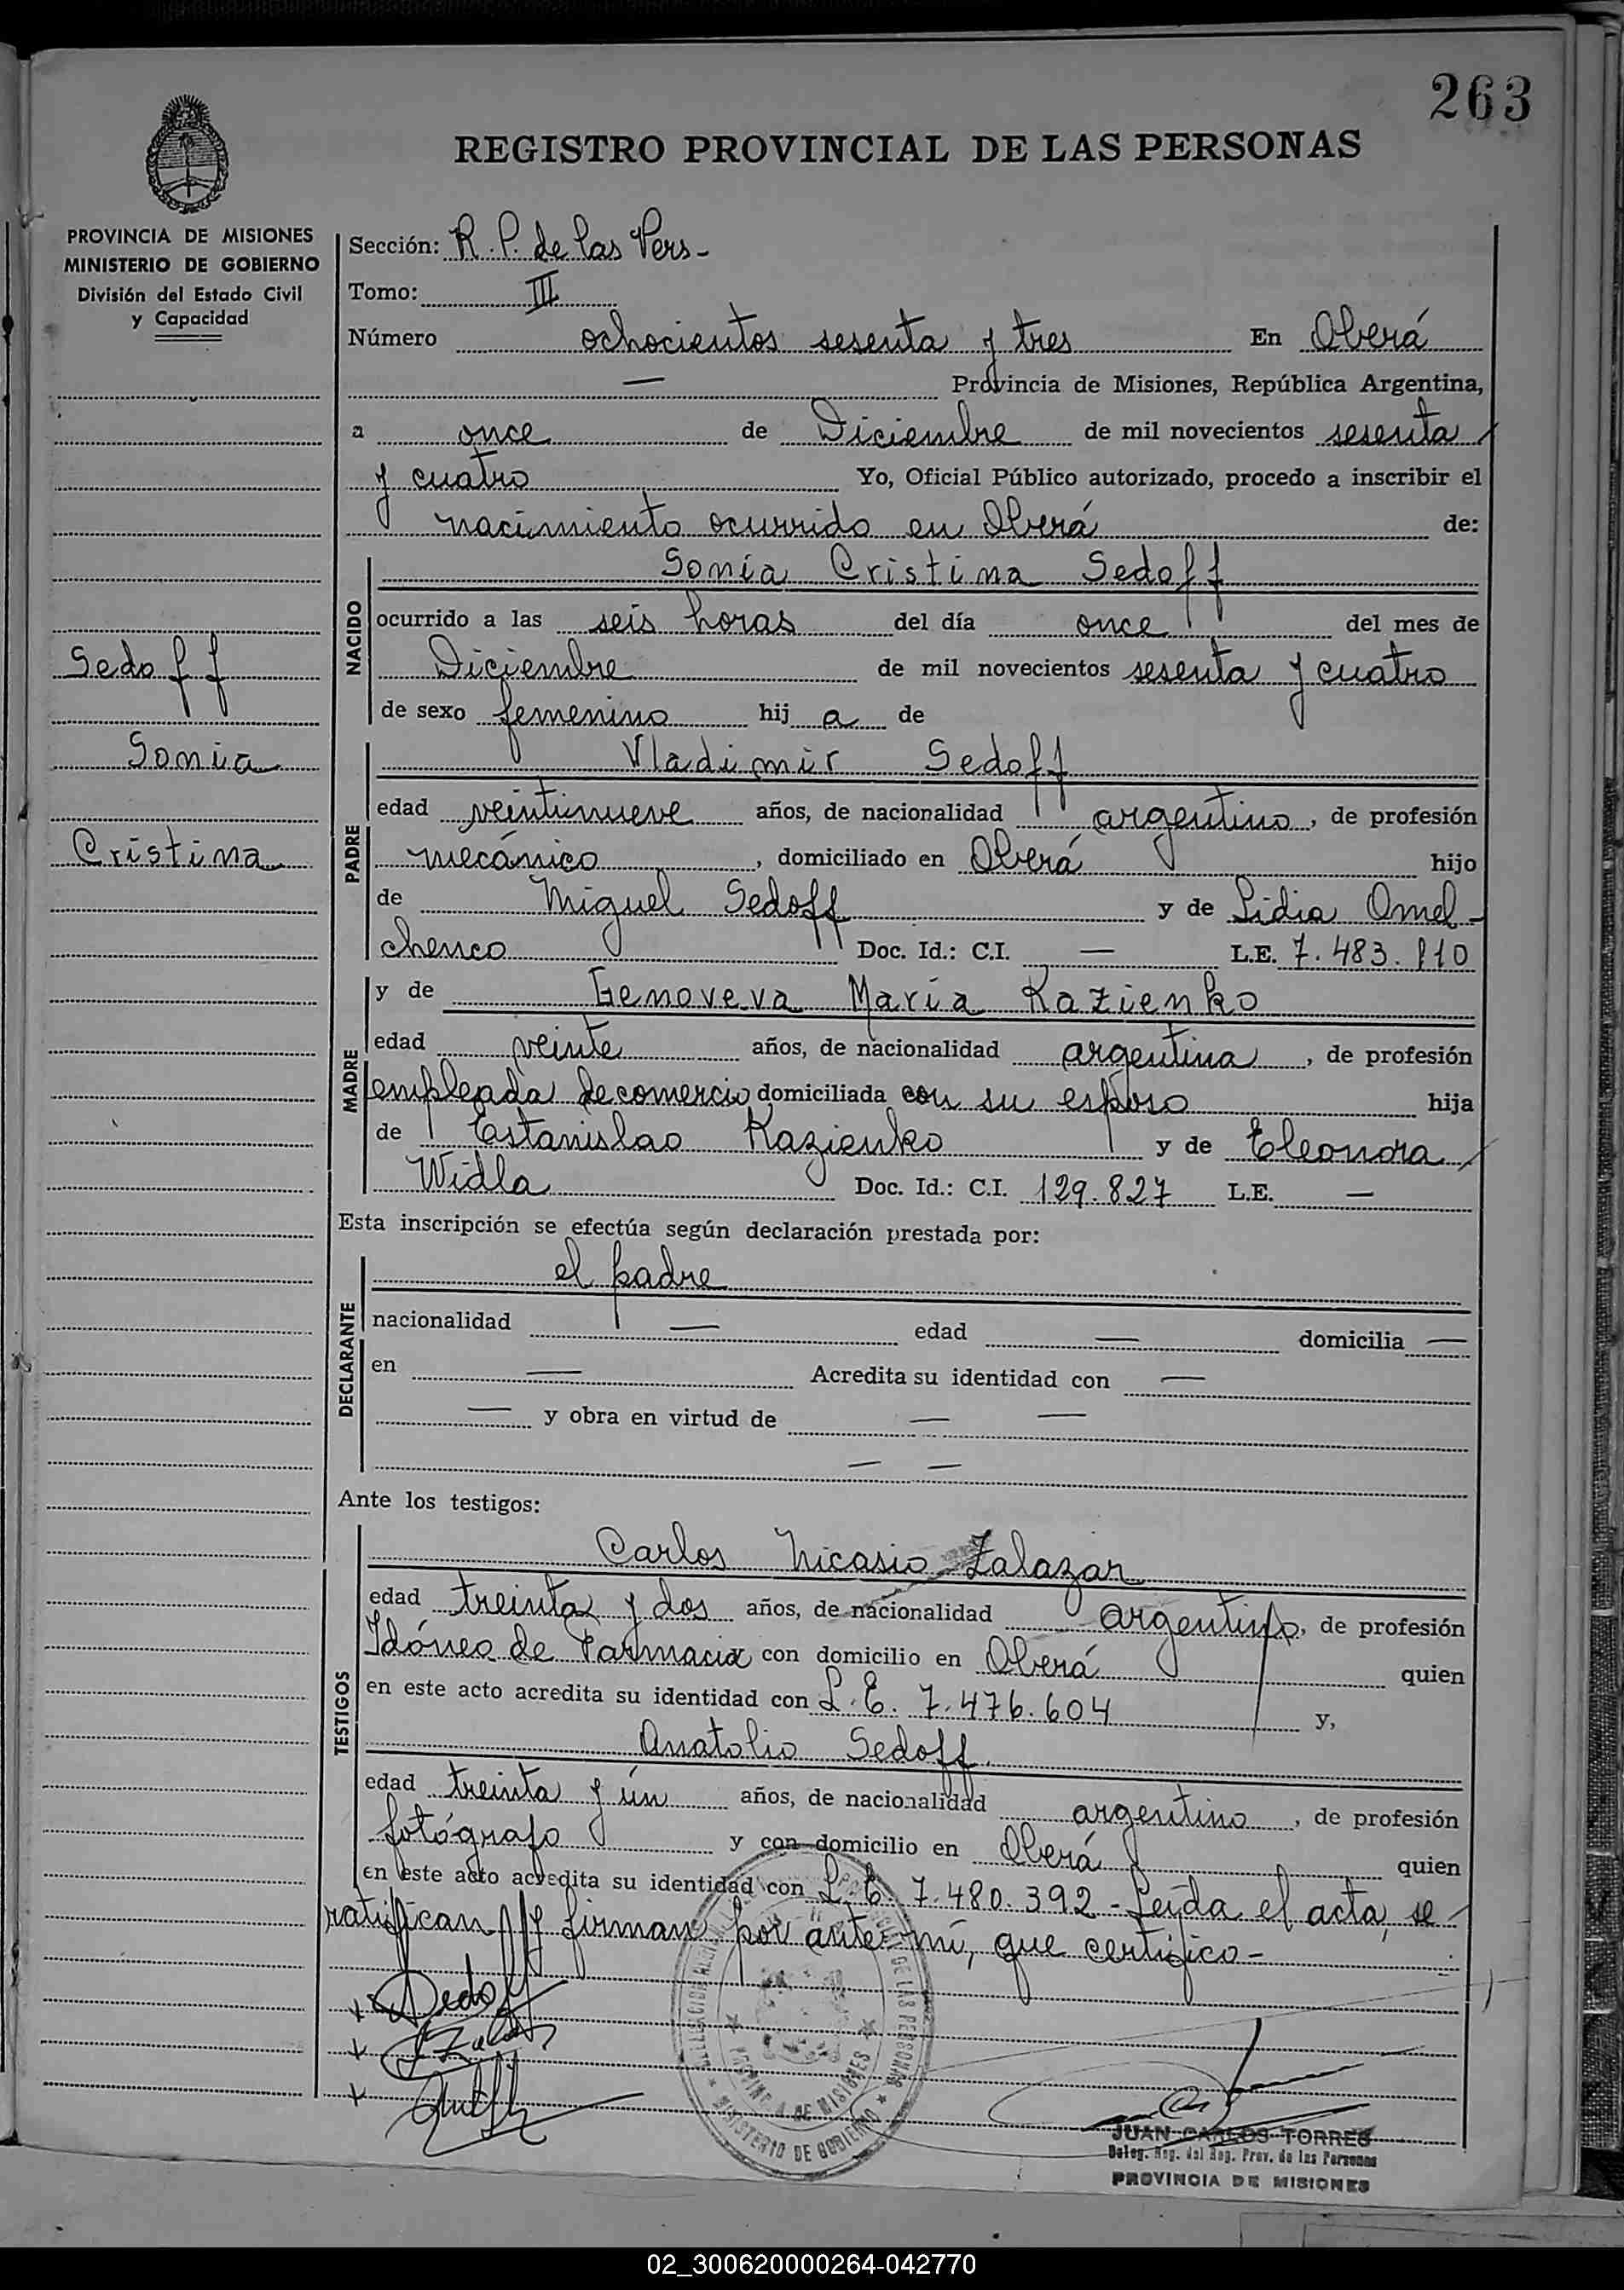 263
REGISTRO PROVINCIAL DE LAS PERSONAS
PROVINCIA DE MISIONES
MINISTERIO DE GOBIERNO
División del Estado Civil
y Capacidad
Sedoff
Sonia
Cristina
Sección: R. P. de las Pers-
Tomo: III
Número ochocientos sesenta y tres En Oberá
— Provincia de Misiones, República Argentina,
a once de Diciembre de mil novecientos sesenta
y cuatro Yo, Oficial Público autorizado, procedo a inscribir el
nacimiento ocurrido en Oberá de:
NACIDO
Sonia Cristina Sedoff
ocurrido a las seis horas del día once del mes de
Diciembre de mil novecientos sesenta y cuatro
de sexo femenino hij a de
PADRE
Vladimir Sedoff
edad veintinueve años, de nacionalidad argentino, de profesión
mecánico, domiciliado en Oberá hijo
de Miguel Sedoff y de Lidia Omel-
chenco Doc. Id.: C.I. — L.E. 7.483.110
MADRE
y de Genoveva María Kazienko
edad veinte años, de nacionalidad argentina, de profesión
empleada de comercio domiciliada con su esposo hija
de Estanislao Kazienko y de Eleonora
Widla Doc. Id.: C.I. 129.827 L.E. —
Esta inscripción se efectúa según declaración prestada por:
DECLARANTE
el padre
nacionalidad — edad — domicilia —
en — Acredita su identidad con —
— y obra en virtud de — —
— —
Ante los testigos:
TESTIGOS
Carlos Nicasio Zalazar
edad treinta y dos años, de nacionalidad argentino, de profesión
Idóneo de Farmacia con domicilio en Oberá quien
en este acto acredita su identidad con L.E. 7.476.604 y,
Anatolio Sedoff
edad treinta y ún años, de nacionalidad argentino, de profesión
fotógrafo y con domicilio en Oberá quien
en este acto acredita su identidad con L.E. 7.480.392 - Leída el acta, se
ratifican y firman por ante mí, que certifico-
Sedoff
PROVINCIA DE MISIONES
MINISTERIO DE GOBIERNO
DE LAS PERSONAS
JUAN CARLOS TORRES
Deleg. Reg. del Reg. Prov. de las Personas
PROVINCIA DE MISIONES
02_300620000264-042770